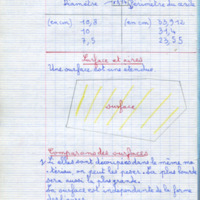 Diamètre Périmètre du cercle
(en cm) 10,8 (en cm) 33,912
10 31,4
7,5 23,55
Surface et aires
Une surface est une étendue.
surface
Comparaison des surfaces
Si elles sont découpées dans le même ma
tériau, on peut les peser. La plus lourde
sera aussi la plus grande.
La surface est indépendante de la forme